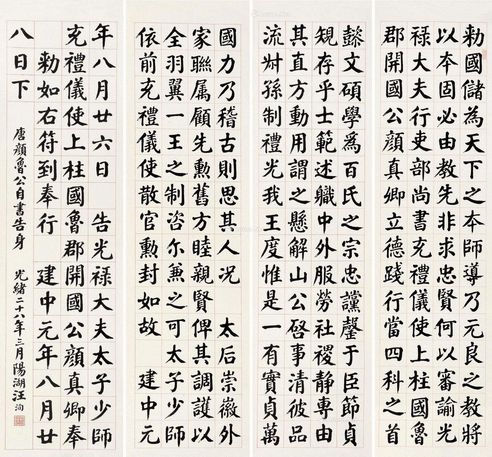 勅國儲為天下之本師導乃元良之教將
以本固必由教先非求忠賢何以審諭光
祿大夫行吏部尚書充禮儀使上柱國魯
郡開國公顏真卿立德踐行當四科之首
懿文碩學為百氏之宗忠讜罄于臣節貞
規存乎士範述職中外服勞社稷靜專由
其直方動用謂之懸解山公啓事清彼品
流叔孫制禮光我王度惟是一有實貞萬
國力乃稽古則思其人况 太后崇徽外
家聯属顧先勲舊方睦親賢俾其調護以
全羽翼一王之制咨尓兼之可太子少師
依前充禮儀使散官勲封如故 建中元
年八月廿六日 告光祿大夫太子少師
充禮儀使上柱國魯郡開國公顏真卿奉
勅如右符到奉行 建中元年八月廿
八日下
唐顏魯公自書告身 光緒二十八年三月陽湖汪洵